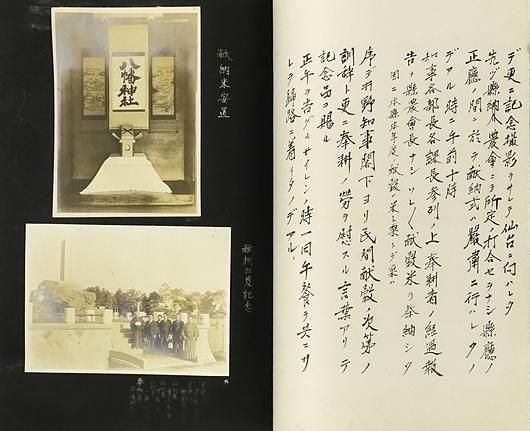 デ更ニ記念撮影ヲサレテ仙台ニ向ハレタ
先ヅ縣農會ニテ所定ノ打合セヲナシ縣廳ノ
正廳ノ間ニ於テ献納式ハ嚴肅ニ行ハレタノ
デアル時ニ午前十時
知事各部長各課長参列ノ上奉耕者ノ経過報
告ヲ縣農會長ナシソレ〱献穀米ヲ奉納シタ
因ニ本縣本年度ノ献穀ハ米ト粟トデ粟ハ
序デ井野知事閣下ヨリ民間献穀ノ次第ノ
訓辞ト更ニ奉耕ノ労ヲ慰スル言葉アリテ
記念品ヲ賜ル
正午ヲ告グルサイレンノ時一同午餐ヲ共ニサ
レテ帰路ニ着イタノデアル
献納米安置
八幡神社
献納出発記念